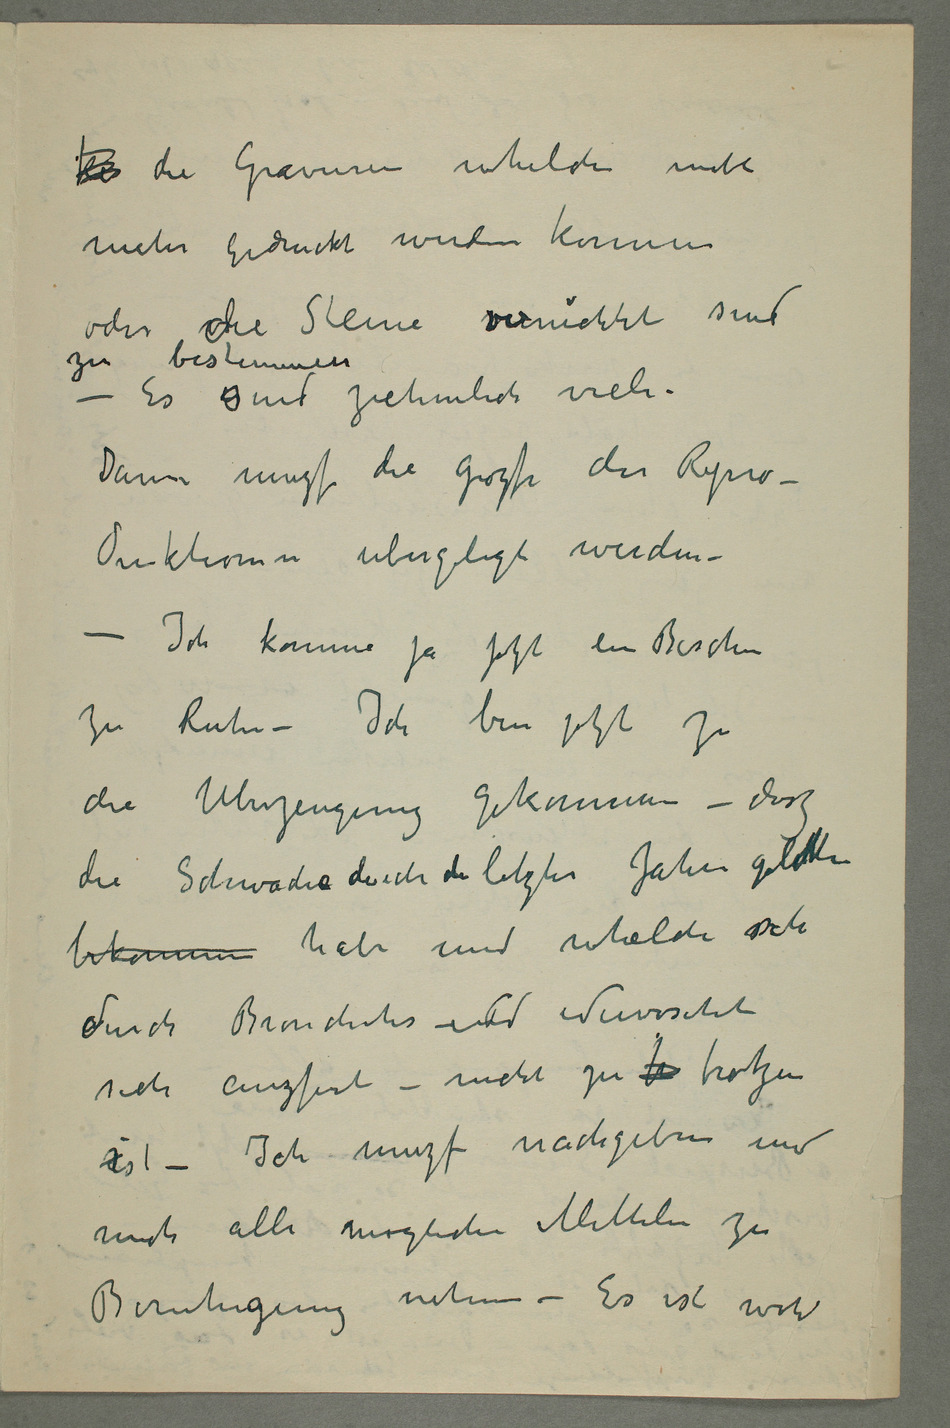 die Gravuren whelche nicht
mehr gedruckt werden konnen
oder die Steine vernichtet sind
zu bestimmen
– Es sind ziehmlich viele.
Dann muszs die Groszse der Repro–
duktionen uberglegt werden –
– Ich komme ja jetzt ein Bischen
zu Ruhe – Ich bin jetzt zu
die Uberzeugung gekommen – dasz
die Schwäche de ich de letzter Jahre gelitten
bekommen habe und whelche sich
durch Bronchites und Nervositet
sich auszsert – nicht zu trotzen
ist – Ich muszs nachgeben und
mich alle mögliche Mittelen zu
Beruhigung nehmen – Es ist wohl